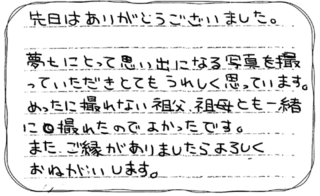 先日はありがとうございました。
夢七にとって思い出になる写真を撮
っていただきとてもうれしく思っています。
めったに撮れない祖父、祖母とも一緒
に撮れたのでよかったです。
また、ご縁がありましたらよろしく
おねがいします。